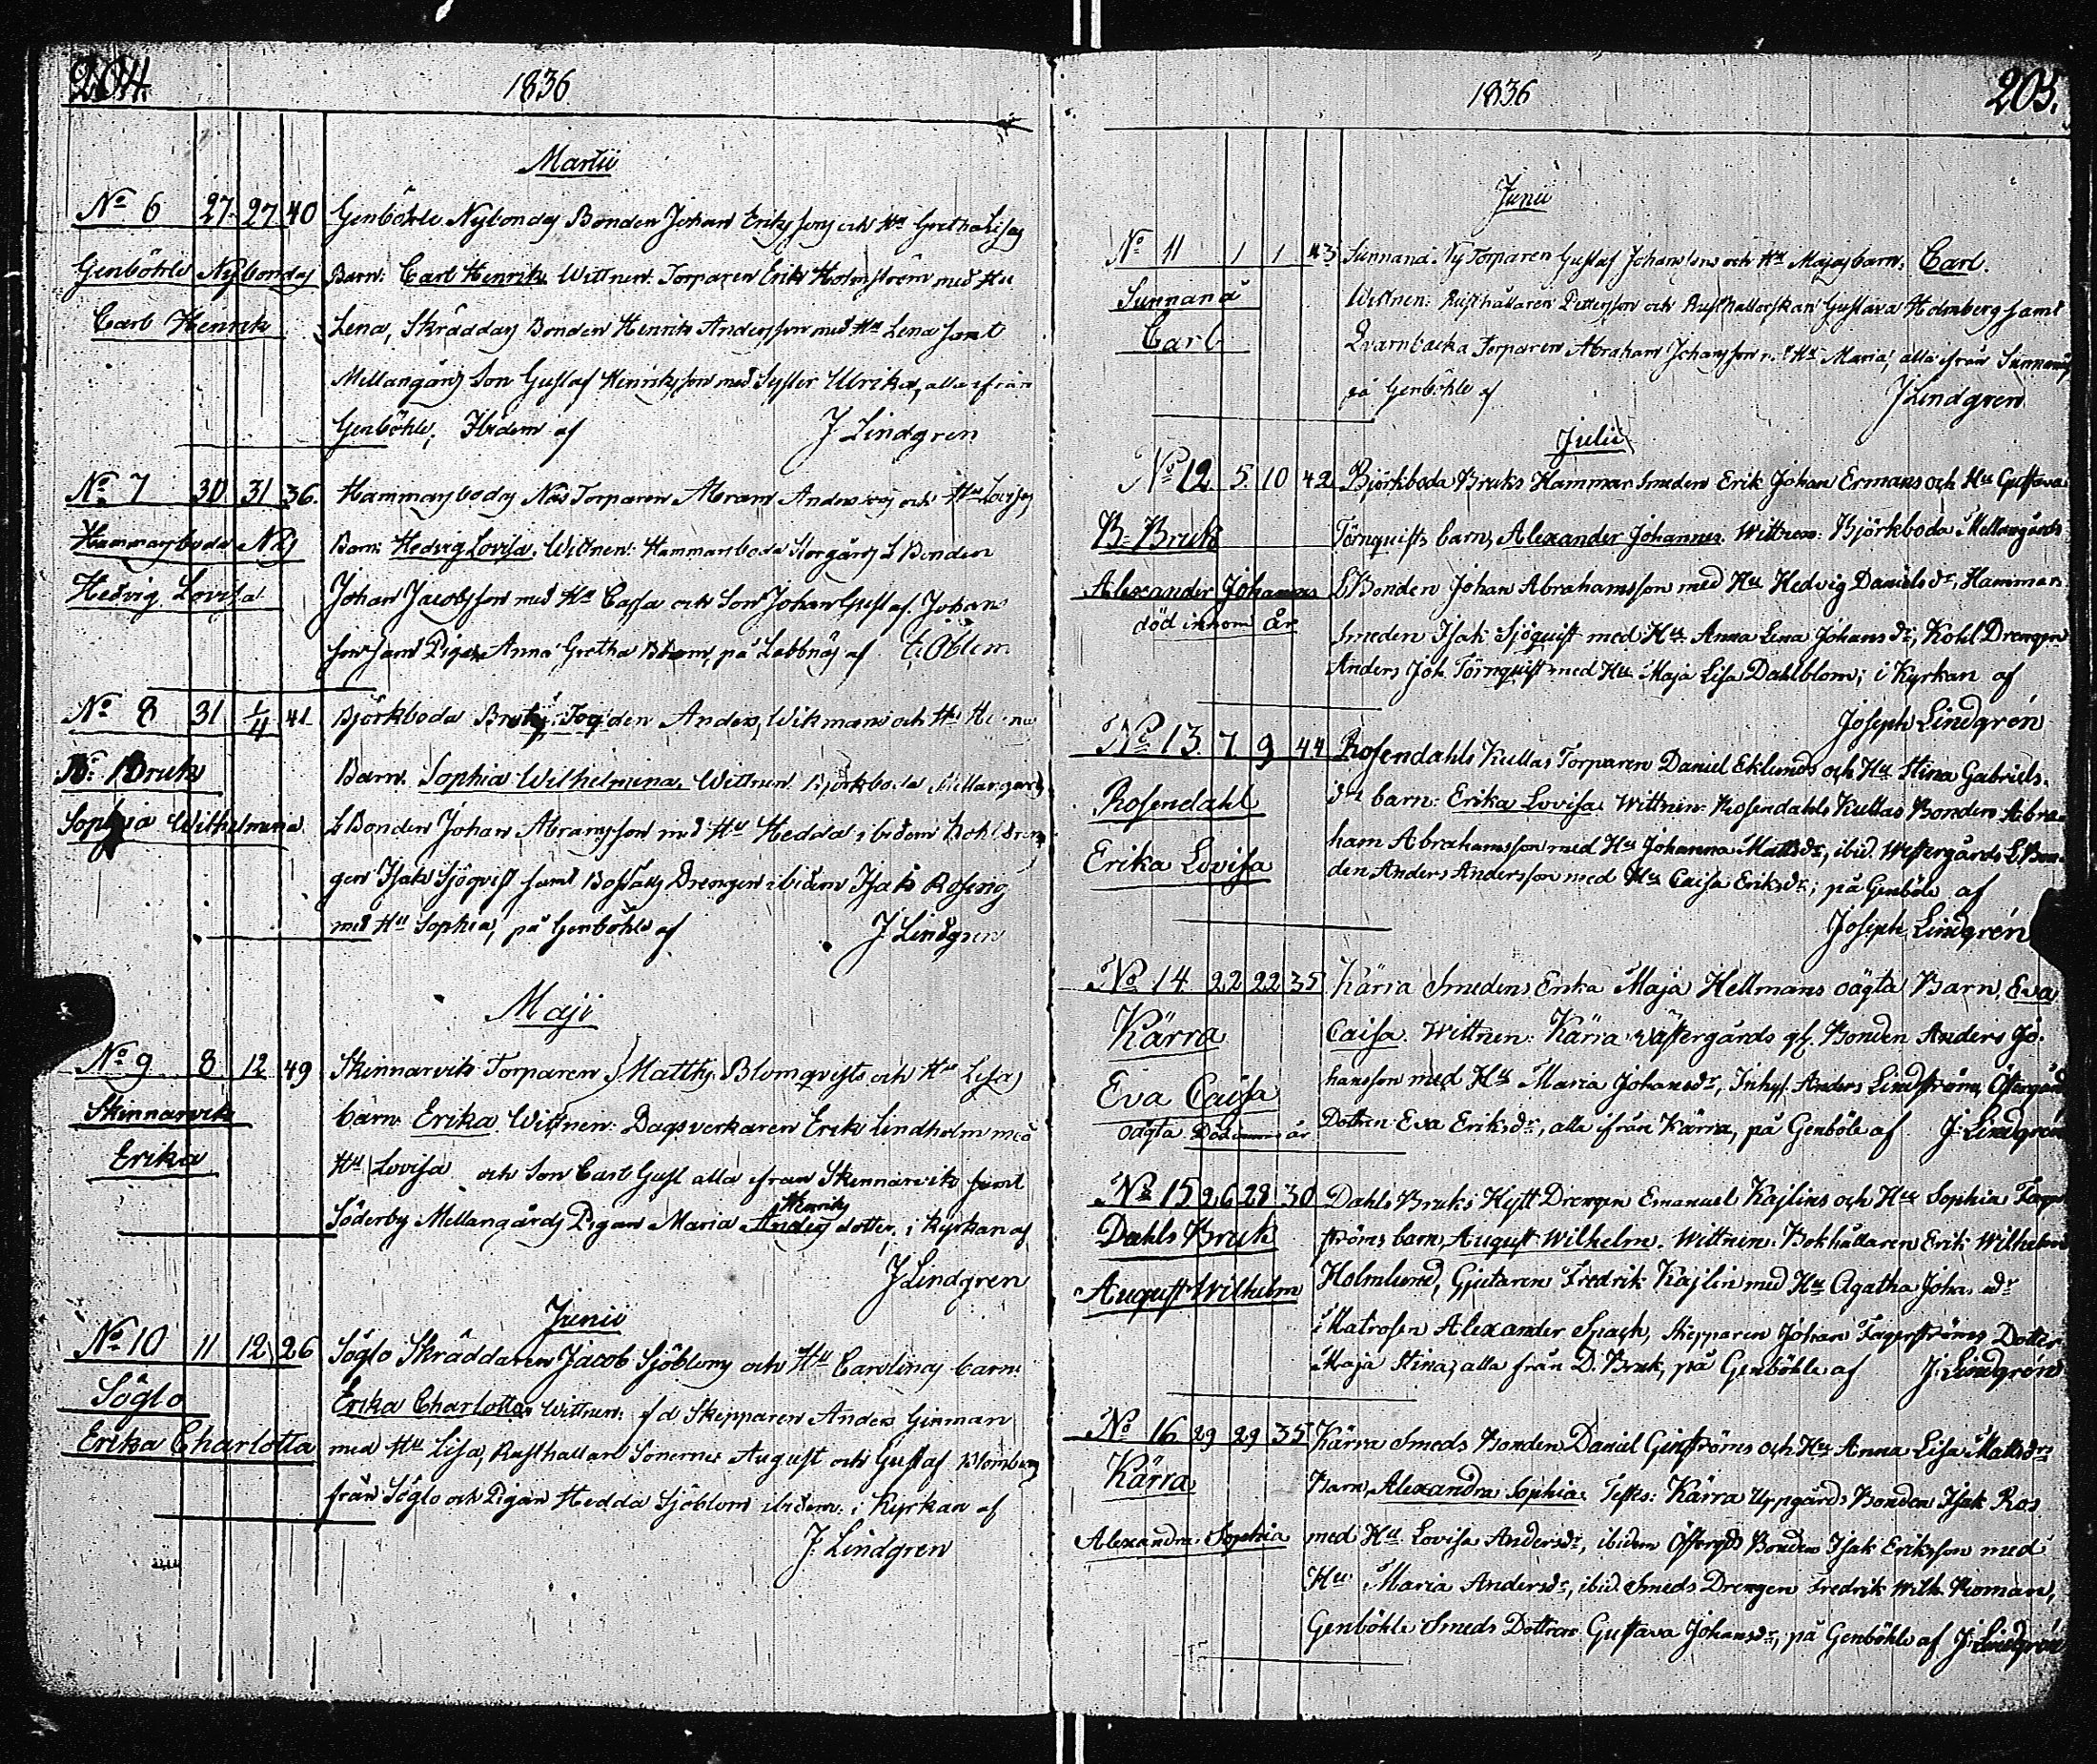 204
1836
Martii
No 6 27 27 40 Genböhle Nybondas Bonden Johan Erikssons och Hu Greta Lisas
Genböhle Nybondas Barn: Carl Henrik Wittnen: Torparen Erik Holmström med Hu
Carl Henrik Lena, Skräddas Bonden Henrik Andersson med Hu Lena samt
Mellangårds Son Gustaf Henriksson med Syster Ulrika, alla ifrån
Genböhle; Ibidem af J Lindgren
No 7 30 31 36. Hammarsboda Näs Torparen Abram Anderssons och Hus Lovisas
Hammarsboda Näs Barn: Hedvig Lovisa. Wittnen: Hammarsboda Storgårds L Bonden
Hedvig Lovisa Johan Jacobsson med Hu Caisa och Son Johan Gustaf Johans
son samt Pigan Anna Gretha, på Labbnäs af
No 8 31 1/4 41. Björkboda Bruks Fogden Anders Wikmans och Hu
B: Bruk Barn. Sophia Wilhelmina. Wittnen Björkboda Mellangårds
Sophia Wilhelmina L Bonden Johan Abramsson med Hu Hedda, ibidem Kohl Dren
gen Isak Sjöqvist samt Drengen ibidem Isak
med Hu Sophia, på Genböhle af J Lindgren
Maji
No 9 8 12 49 Skinnarvik Torparen Matths Blomqvists och Hus Lisas
Skinnarvik barn Erika Wittnen: Dagsverkaren Erik Lindholm med
Erika Hu Lovisa och Son Carl Gust alla ifrån Skinnarvik samt
Henriks
Söderby Mellangårds Pigan Maria Anders dotter, i Kyrkan af
J Lindgren
Junii
No 10 11 12 26 Söglo Skräddaren Jacob Sjöbloms och Hu Carolinas barn:
Söglo Erika Charlotta, Wittnen: fd Skepparen Anders Ginman
Erika Charlotta med Hu Lisa, Rusthållare Sönerne August och Gustaf Blomberg
från Söglo och Pigan Hedda Sjöblom ibidem: i Kyrkan af
J. Lindgren
1836
205.
Junii
No 11 1 1 43 Sunnanå Ny Torparen Gustaf Johanssons och Hu Majas barn: Carl.
Sunnanå Wittnen: Rusthållaren Pettersson och Rusthållarskan Gustava Holmberg samt
Carl Qvarnbacka Torparen Abraham Johansson m. Hu Maria, alla ifrån Sunnanå
på Genböhle af J Lindgren
Julii
No 12. 5 10 42 Björkboda Bruks Hammar Smeden Erik Johan Ermans och Hus Gustava
B: Bruk Törnquists barn, Alexander Johannes. Wittnen: Björkboda Mellangårds
Alexander Johannes L Bonden Johan Abrahamsson med Hu Hedvig Danielsdr, Hammar
död innom år Smeden Isak Sjöquist med Hu Anna Lena Johansdr, Kohl Drengen
Anders Joh. Törnquist med Hu Maja Lisa Dahlblom; i Kyrkan af
Joseph Lindgrén
No 13. 7. 9 44 Rosendahls Kullas Torparen Daniel Eklunds och Hu Stina Gabriels-
Rosendahl drs barn: Erika Lovisa. Wittnen: Rosendahls Kullas Bonden Abra-
Erika Lovisa ham Abrahamsson med Hu Johanna Mattsdr, ibid. Westergårds L Bon-
den Anders Andersson med Hu Caisa Eriksdr; på Genböle af
Joseph Lindgrén
No 14 22 22 35 Kärra Smedens Erika Maja Hellmans oägta Barn, Eva
Kärra Caisa. Wittnen: Kärra Wästergårds Bonden Anders Jo-
Eva Caisa hansson med Hu Maria Johansdr, Inhys. Anders Lindström, Östergård
oägta Död innom år Dottren Eva Eriksdr, alla ifrån Kärra, på Genböle af J. Lindgrén
No 15 26 28 30 Dahls Bruks Hytt Drengen Emanuel Kajlins och Hus Sophia Fager-
Dahls Bruk ströms barn, August Wilhelm. Wittnen: Bokhållaren Erik Wilhelm
August Wilhelm Holmlund, Gjutaren Fredrik Kajlin med Hu Agatha Johansdr
Matrosen Alexander Spach, Skepparen Johan Fagerströms Dotter
Maja Stina, alla från D. Bruk, på Genböhle af J. Lindgrén
No 16 29 29 35 Kärra Smeds Bonden Daniel Genströms och Hus Anna Lisa Mattsdrs
Kärra Barn, Alexandra Sophia. Testes: Kärra Uppgårds Bonden Isak Ros
Alexandra Sophia med Hu Lovisa Andersdr, ibidem Östergds Bonden Isak Eriksson med
Hu Maria Andersdr, ibid. Smeds Drengen Fredrik Wilh. Roman,
Genböhle Smeds Dottren Gustava Johansdr, på Genböhle af J. Lindgrén